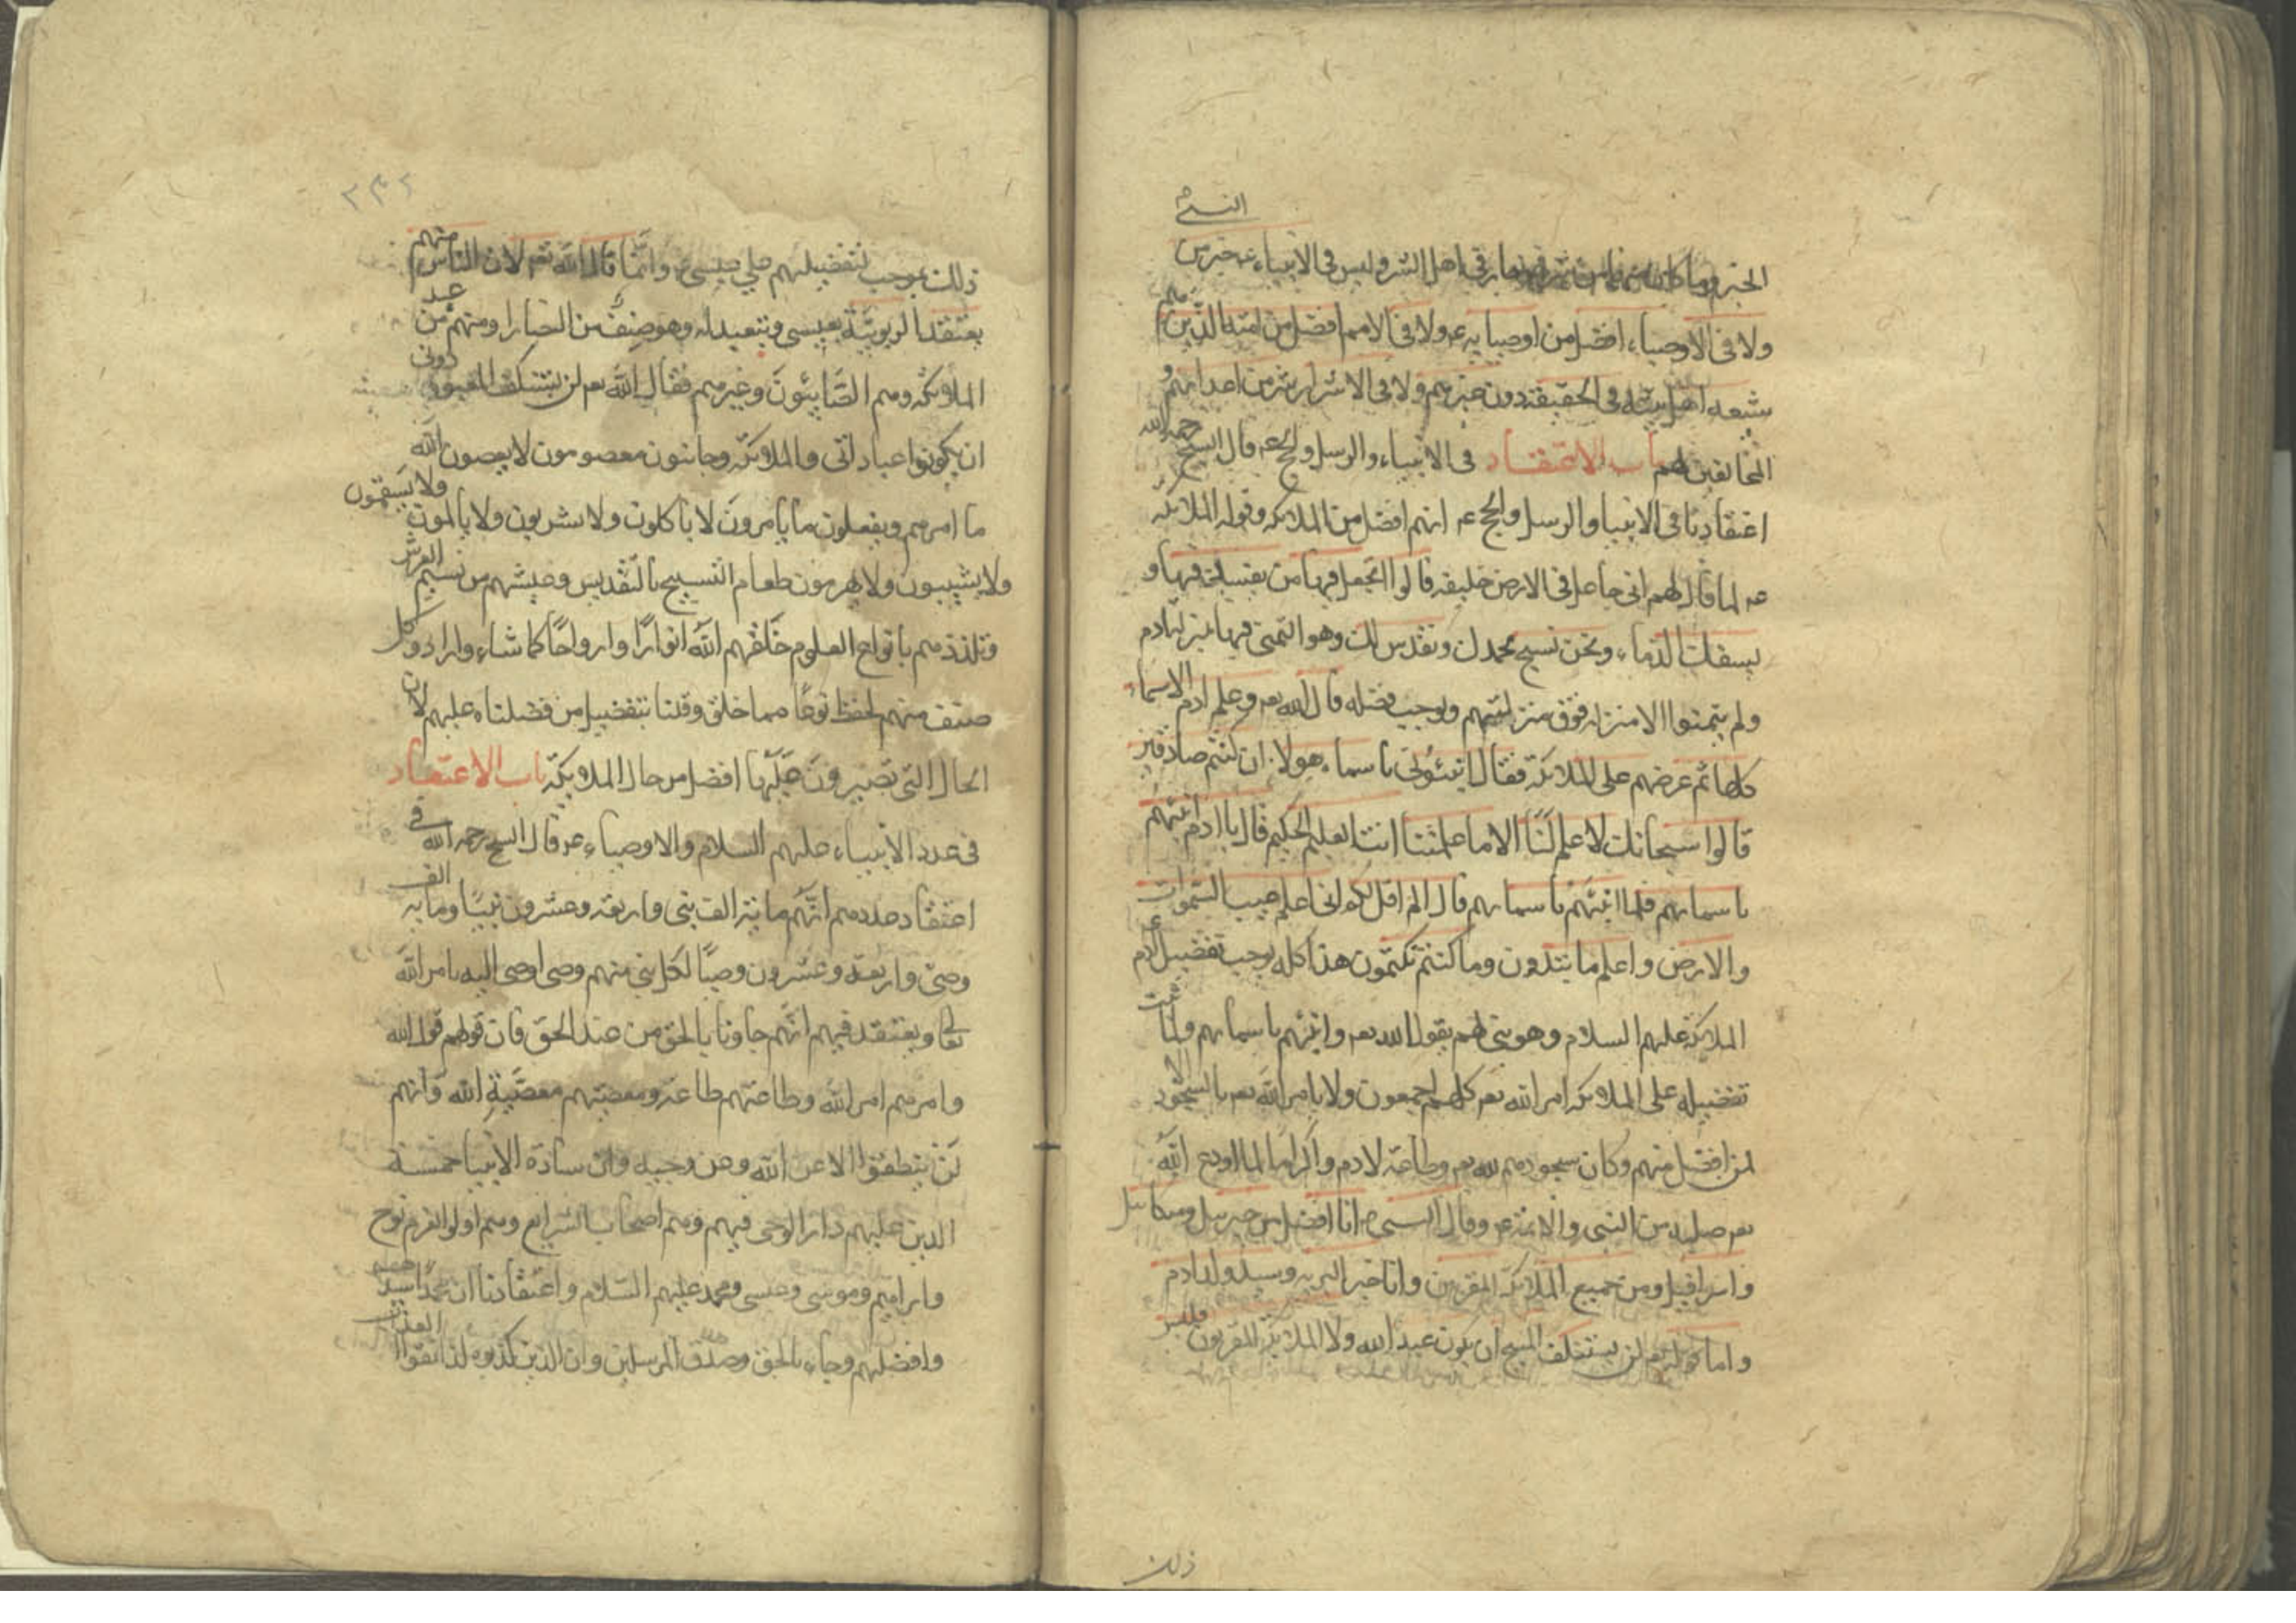 النبي
الخير وما كان فيهم من شر فهو ما رقى اهل الشر وليس فى الانبياء عم خير من
ولا فى الاوصياء افضل من اوصيايه عم ولا فى الامم افضل من امته الذين هم
شيعه اهل بيته فى الحقيقة دون غيرهم ولا فى الاشرار شر من اعدائهم و
المخالفين لهم باب الاعتقاد فى الانبياء والرسل والحجج عم قال الشيخ رحمه الله
اعتقادنا فى الانبيا والرسل والحجج عم انهم افضل من الملائكه وقوله الملائكه
عم لما قال لهم انى جاعل فى الارض خليفه قالوا اتجعل فيها من يفسد فيها و
يسفك الدماء ونحن نسبح بحمدك ونقدس لك وهو التمنى فيها بمنزله ادم
ولم يتمنوا الا منزله فوق منزلتهم ويوجب فضله قال الله تعم وعلم ادم الاسماء
كلها ثم عرضهم على الملائكة فقال انبئونى باسماء هولاء ان كنتم صادقين
قالوا سبحانك لا علم لنا الا ما علمتنا انك انت العليم الحكيم قال يا ادم انبئهم
باسمائهم فلما انبئهم باسمائهم قال الم اقل لكم انى اعلم غيب السموات
والارض واعلم ما تبدون وما كنتم تكتمون هذا كله يوجب تفضيل ادم ع
الملائكة عليهم السلام وهو نبى لهم بقول الله تعم وانبئهم باسمائهم ولما ثبت
تفضيله على الملائكه امر الله تعم كلهم اجمعون ولا يامر الله تعم بالسجود الا
لمن افضل منهم وكان سجودهم لله تعم وطاعة لادم واكراما لما اودع الله
تعم صلبه من النبى والائمة عم وقال النبى ص انا افضل من جبرئيل وميكائيل
واسرافيل ومن جميع الملائكة المقربين وانا خير البريه وسيد ولد ادم
واما قوله تعم لن يستنكف المسيح ان يكون عبدا لله ولا الملائكة المقربون فليس
ذلك
٢٣٢
ذلك بموجب لتفضيلهم على عيسى عم وانما قال الله تعم لان الناس منهم
يعتقد الربوبية بعيسى ويتعبد له وهو صنف من النصارا ومنهم من عبد
الملائكه وهم الصابئون وغيرهم فقال الله تعم لن يستنكف المعبودون دونى
ان يكونوا عبادا لى والملائكه روحانيون معصومون لا يعصون الله
ما امرهم ويفعلون ما يامرون لا ياكلون ولا يشربون ولا يالمون ولا يسقمون
ولا يشيبون ولا يهرمون طعام التسبيح بالتقديس وعيشهم من نسيم العرش
وتلذذهم بانواع العلوم خلقهم الله انوارا وارواحا كما شاء واراد وكل
صنف منهم يحفظ نوعا مما خلق وقلنا بتفضيل من فضلناه عليهم لان
الحال التى تصيرون عليها افضل من حال الملائكة باب الاعتقاد
فى عدد الانبياء عليهم السلام والاوصياء عم قال الشيخ رحمه الله فى
اعتقاد عددهم انهم مائة الف نبى واربعه وعشرون نبيا ومايه الف
وصى واربعة وعشرون وصيا لكل نبى منهم وصى اوصى اليه بامر الله
تعالى ويعتقد فيهم انهم جاونا بالحق من عند الحق فان قولهم قول الله
وامرهم امر الله وطاعتهم طاعة ومعصيتهم معصية الله وانهم
لن ينطقوا الا عن الله وعن وحيه وان سادة الانبيا خمسة
الذين عليهم دار الوحى فيهم وهم اصحاب الشرايع وهم اولوا العزم نوح
وابراهيم وموسى وعيسى ومحمد عليهم السلام واعتقادنا ان محمدا سيدهم
وافضلهم وجاء بالحق وصدق المرسلين وان الذين كذبوه لذائقوا العذاب